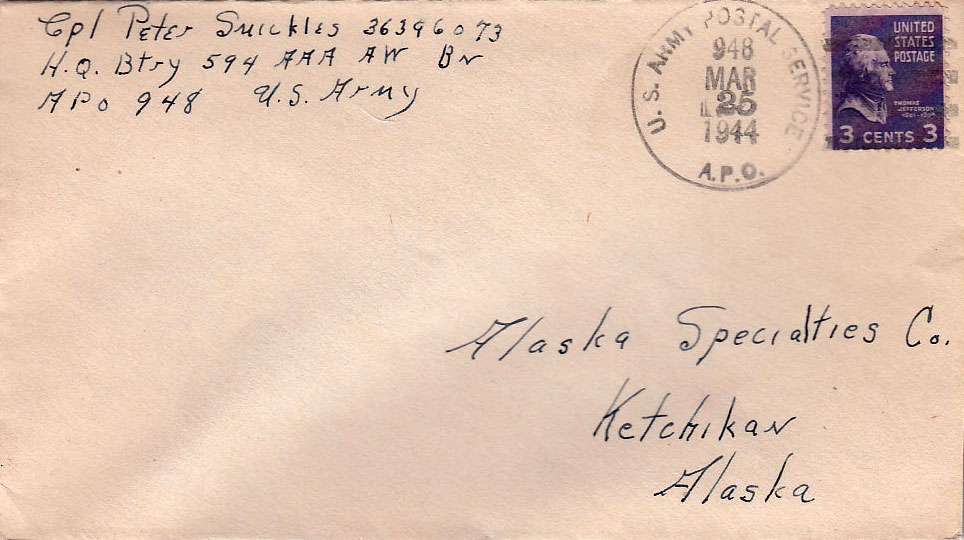 Cpl Peter Smickles 36396073
H.Q. Btry 594 AAA AW Bn
APO 948 U.S. Army
U.S. ARMY POSTAL SERVICE
948
MAR
25
1944
A.P.O.
UNITED
STATES
POSTAGE
THOMAS
JEFFERSON
3 CENTS 3
Alaska Specialties Co.
Ketchikan
Alaska